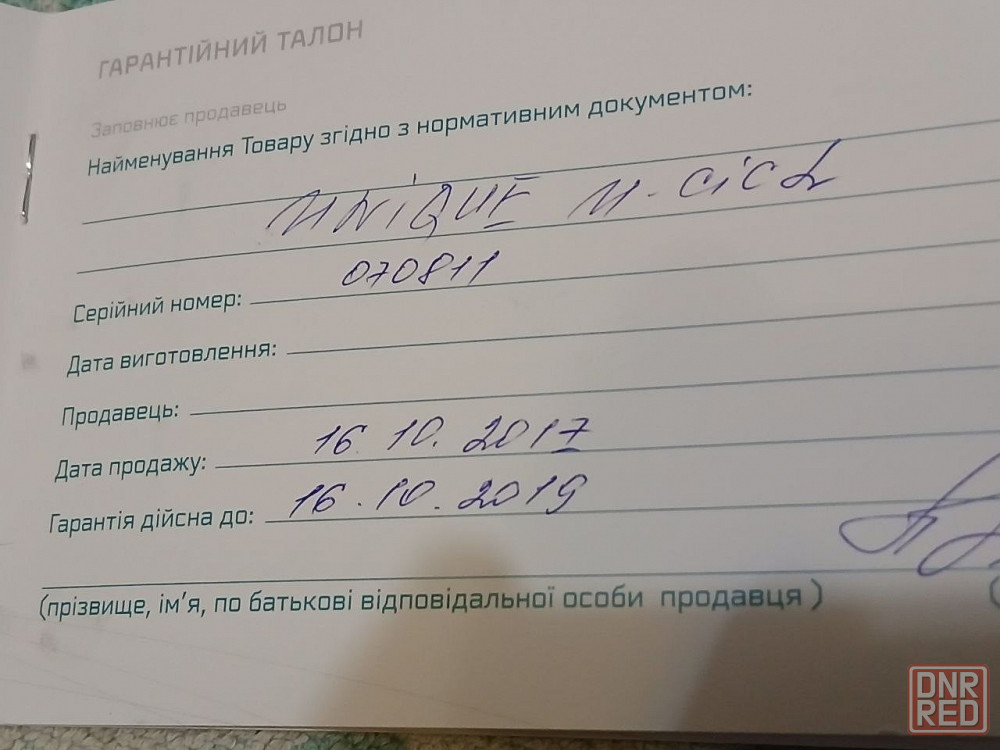 ГАРАНТІЙНИЙ ТАЛОН
Заповнює продавець
Найменування Товару згідно з нормативним документом:
UNIQUE U-CICL
Серійний номер: 070811
Дата виготовлення:
Продавець:
Дата продажу: 16 10. 2017
Гарантія дійсна до: 16.10.2019
(прізвище, ім'я, по батькові відповідальної особи продавця )
(
DNR
RED